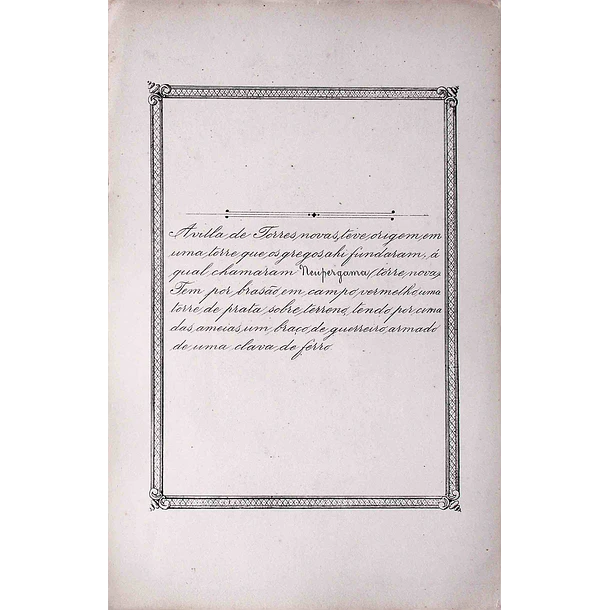 A villa de Torres novas, teve origem em
uma torre que os gregos ahi fundaram, á
qual chamaram Neupergama (torre nova)
Tem por brasão, em campo vermelho, uma
torre de prata sobre terreno, tendo por cima
das ameias, um braço de guerreiro, armado
de uma clava de ferro.